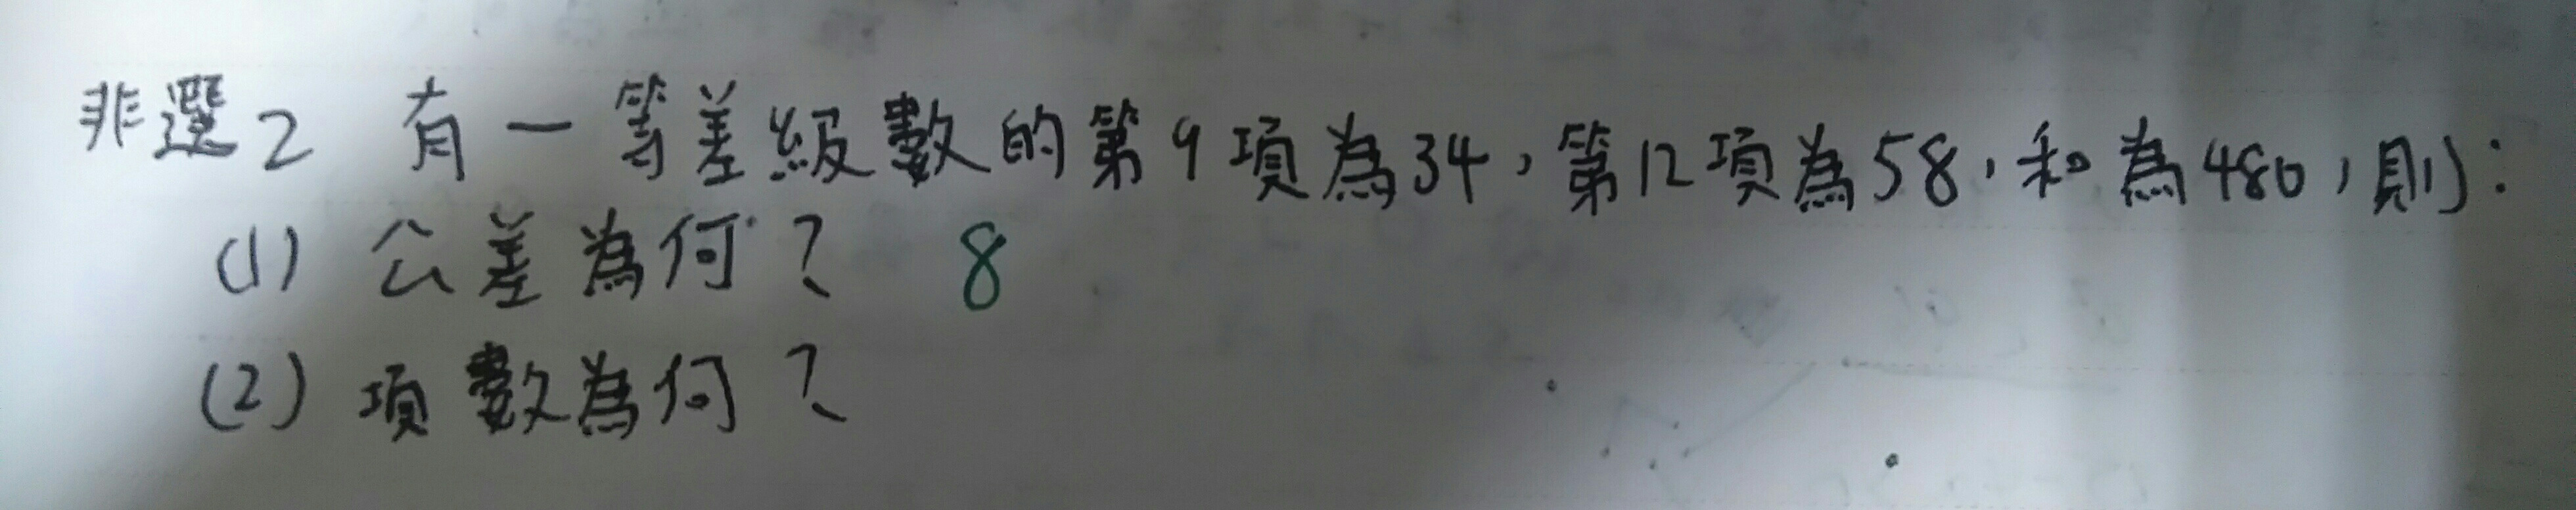 非選2 有一等差級數的第9項為34,第12項為58,和為480,則:
(1) 公差為何? 8
(2) 項數為何?